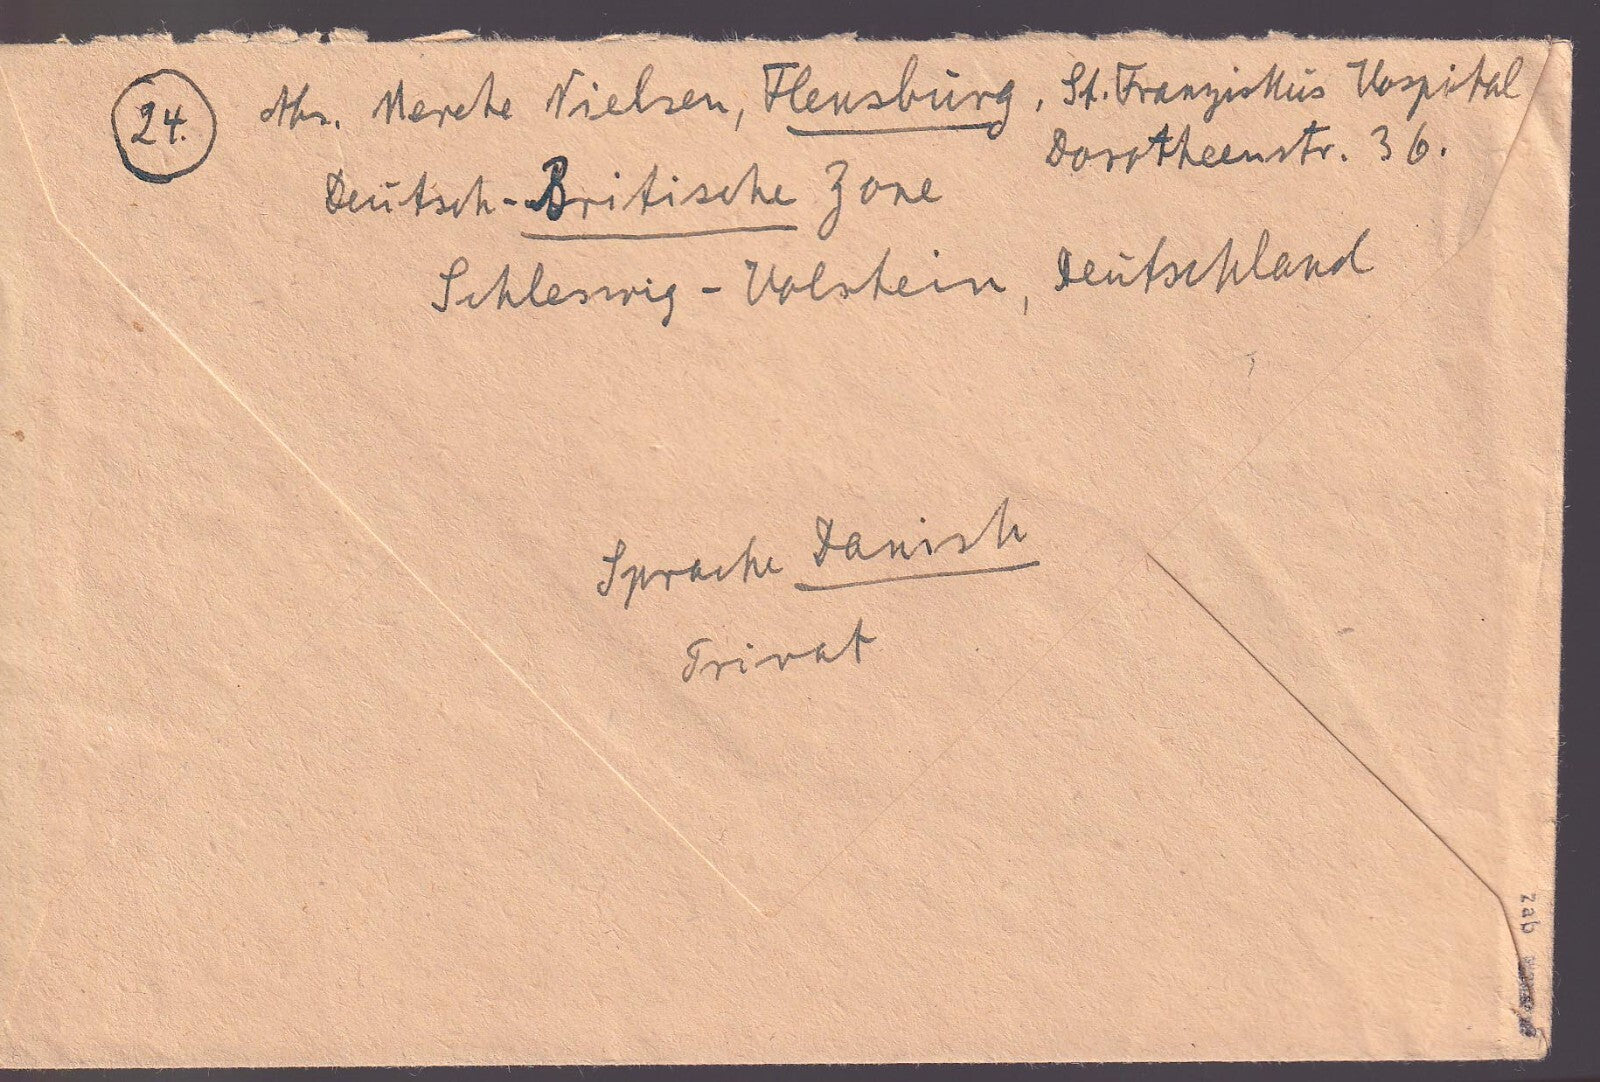 24. Abs. Merete Nielsen, Flensburg, St. Franziskus Hospital
Dorotheenstr. 36.
Deutsch-Britische Zone
Schleswig-Holstein, Deutschland
Sprache Danish
Privat
zab